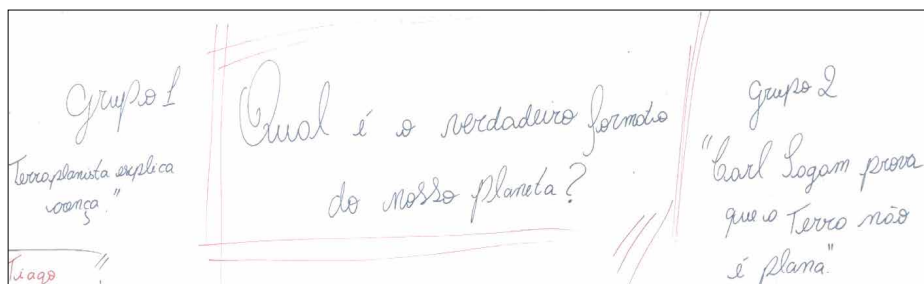 Grupo 1
Terraplanista explica
crença."
Tiago
Qual é o verdadeiro formato
do nosso planeta?
Grupo 2
"Carl Sagam prova
que a Terra não
é plana"